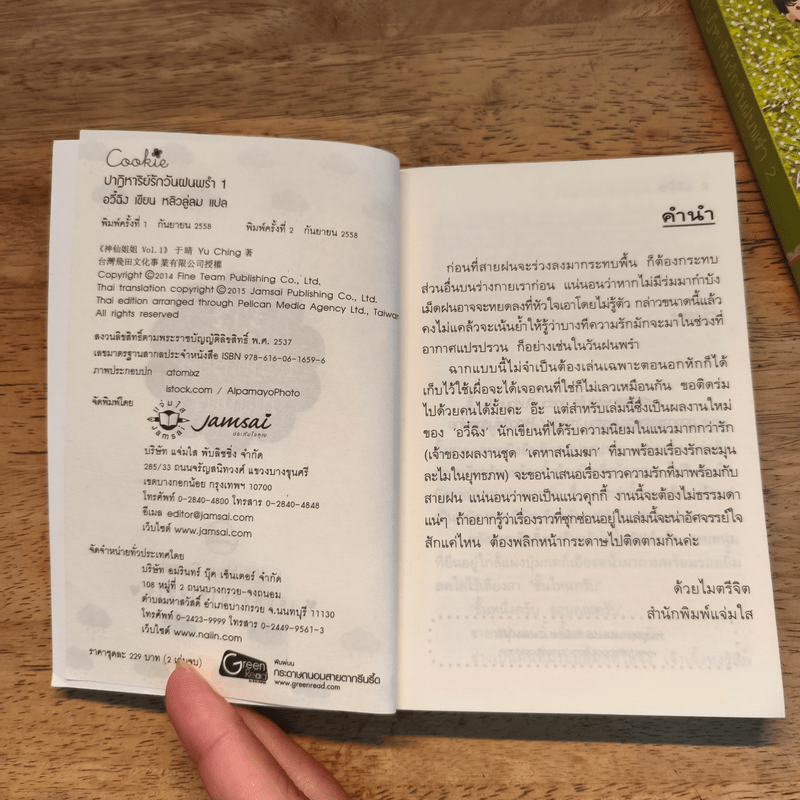 Cookie
ปาฏิหาริย์รักวันฝนพรำ 1
อวี๋ฉิง เขียน หลิวลู่ลม แปล
พิมพ์ครั้งที่ 1 กันยายน 2558 พิมพ์ครั้งที่ 2 กันยายน 2558
《神仙姐姐 Vol.1》于晴 Yu Ching 著
台灣飛田文化事業有限公司授權
Copyright ©2014 Fine Team Publishing Co., Ltd.
Thai translation copyright ©2015 Jamsai Publishing Co., Ltd.
Thai edition arranged through Pelican Media Agency Ltd., Taiwan
All rights reserved
สงวนลิขสิทธิ์ตามพระราชบัญญัติลิขสิทธิ์ พ.ศ. 2537
เลขมาตรฐานสากลประจำหนังสือ ISBN 978-616-06-1659-6
ภาพประกอบปก atomixz
istock.com / AlpamayoPhoto
จัดพิมพ์โดย
แจ่มใส
Jamsai
Jamsai
บริษัท แจ่มใส พับลิชชิ่ง จำกัด
285/33 ถนนจรัญสนิทวงศ์ แขวงบางขุนศรี
เขตบางกอกน้อย กรุงเทพฯ 10700
โทรศัพท์ 0-2840-4800 โทรสาร 0-2840-4848
อีเมล editor@jamsai.com
เว็บไซต์ www.jamsai.com
จัดจำหน่ายทั่วประเทศโดย
บริษัท อมรินทร์ บุ๊ค เซ็นเตอร์ จำกัด
108 หมู่ที่ 2 ถนนบางกรวย-จงถนอม
ตำบลมหาสวัสดิ์ อำเภอบางกรวย จ.นนทบุรี 11130
โทรศัพท์ 0-2423-9999 โทรสาร 0-2449-9561-3
เว็บไซต์ www.naiin.com
ราคาชุดละ 229 บาท (2 เล่มจบ)
Green Read
พิมพ์บน
กระดาษถนอมสายตากรีนรี้ด
www.greenread.com
คำนำ
ก่อนที่สายฝนจะร่วงลงมากระทบพื้น ก็ต้องกระทบ
ส่วนอื่นบนร่างกายเราก่อน แน่นอนว่าหากไม่มีร่มมากำบัง
เม็ดฝนอาจจะหยดลงที่หัวใจเอาโดยไม่รู้ตัว กล่าวขนาดนี้แล้ว
คงไม่แคล้วจะเน้นย้ำให้รู้ว่าบางทีความรักมักจะมาในช่วงที่
อากาศแปรปรวน ก็อย่างเช่นในวันฝนพรำ
ฉากแบบนี้ไม่จำเป็นต้องเล่นเฉพาะตอนอกหักก็ได้
เก็บไว้ใช้เผื่อจะได้เจอคนที่ใช่ก็ไม่เลวเหมือนกัน ขอติดร่ม
ไปด้วยคนได้มั้ยคะ อ๊ะ แต่สำหรับเล่มนี้ซึ่งเป็นผลงานใหม่
ของ ‘อวี๋ฉิง’ นักเขียนที่ได้รับความนิยมในแนวมากกว่ารัก
(เจ้าของผลงานชุด ‘เคหาสน์เมฆา’ ที่มาพร้อมเรื่องรักละมุน
ละไมในยุทธภพ) จะขอนำเสนอเรื่องราวความรักที่มาพร้อมกับ
สายฝน แน่นอนว่าพอเป็นแนวคุกกี้ งานนี้จะต้องไม่ธรรมดา
แน่ๆ ถ้าอยากรู้ว่าเรื่องราวที่ซุกซ่อนอยู่ในเล่มนี้จะน่าอัศจรรย์ใจ
สักแค่ไหน ต้องพลิกหน้ากระดาษไปติดตามกันค่ะ
ด้วยไมตรีจิต
สำนักพิมพ์แจ่มใส